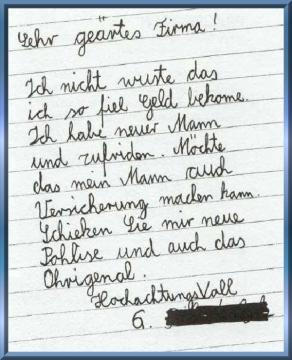 Sehr geärtes Firma!
Ich nicht wuste das
ich so fiel Geld bekome.
Ich habe neuer Mann
und zufriden. Möchte
das mein Mann auch
Versicherung machen kann.
Schieken Sie mir neue
Pohlise und auch das
Ohrigenal.
HochachtungsVall
G.